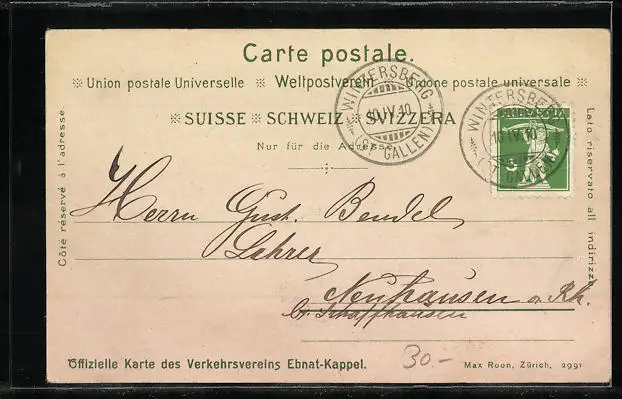 Carte postale.
※ Union postale Universelle ※ Weltpostverein ※ Unione postale universale ※
※ SUISSE ※ SCHWEIZ ※ SVIZZERA
Nur für die Adresse
WINTERSBERG
10.IV.10
(ST. GALLEN)
WINTERSBERG
10.IV.10
(ST. GALLEN)
HELVETIA
Côté réservé à l'adresse.
Lato riservato all indirizz
Herrn Gust. Bendel
Lehrer
Neuhausen a. Rh.
b. Schaffhausen
30.-
Offizielle Karte des Verkehrsvereins Ebnat-Kappel.
Max Roon, Zürich, 2991